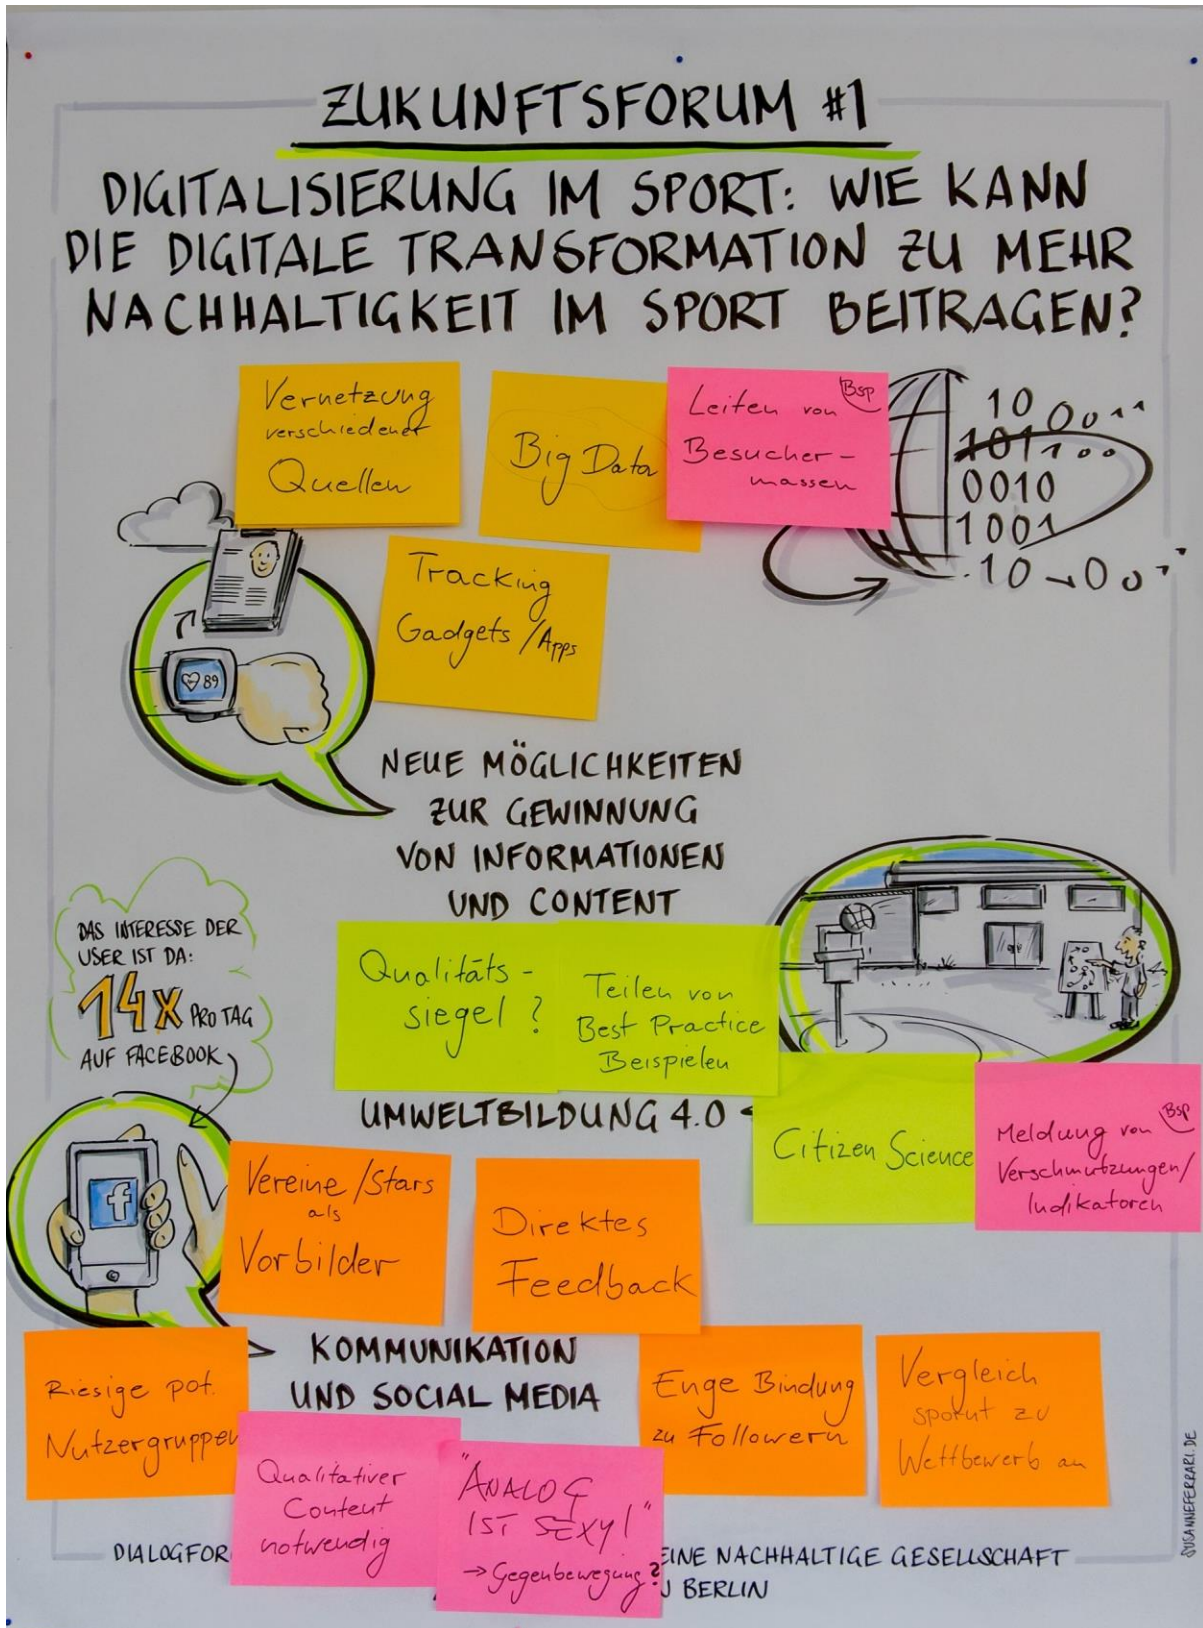 ZUKUNFTSFORUM #1
DIGITALISIERUNG IM SPORT: WIE KANN
DIE DIGITALE TRANSFORMATION ZU MEHR
NACHHALTIGKEIT IM SPORT BEITRAGEN?
Vernetzung
verschiedener
Quellen
Big Data
Bsp
Leiten von
Besucher-
massen
10 0011
1011100
0010
1001
Tracking
Gadgets/Apps
89
NEUE MÖGLICHKEITEN
ZUR GEWINNUNG
VON INFORMATIONEN
UND CONTENT
DAS INTERESSE DER
USER IST DA:
14X PRO TAG
AUF FACEBOOK
Qualitäts-
siegel?
Teilen von
Best Practice
Beispielen
UMWELTBILDUNG 4.0
Citizen Science
Bsp
Meldung von
Verschmutzungen/
Indikatoren
f
Vereine/Stars
als
Vorbilder
Direktes
Feedback
KOMMUNIKATION
UND SOCIAL MEDIA
Riesige pot.
Nutzergruppen
Enge Bindung
zu Followern
Vergleich
spornt zu
Wettbewerb an
Qualitativer
Content
notwendig
"ANALOG
IST SEXY!"
→ Gegenbewegung?
DIALOGFOR
EINE NACHHALTIGE GESELLSCHAFT
BERLIN
SUSANNEFERRARI.DE